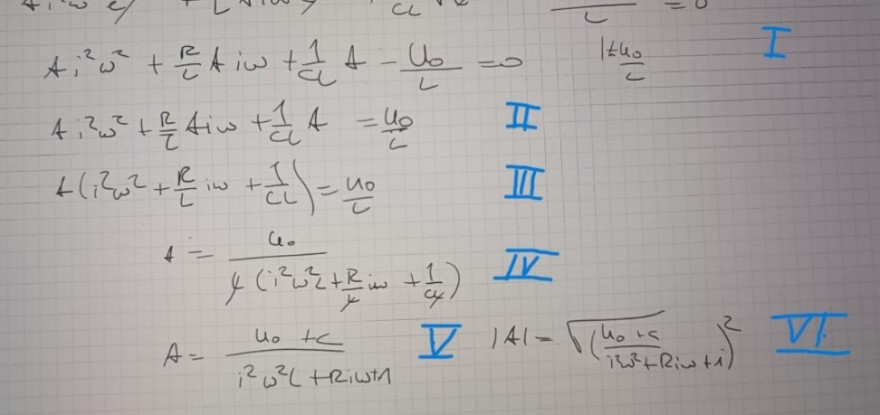 A i²ω² + R/L A iω + 1/CL A - U₀/L = 0 |+ u₀/L I
A i²ω² + R/L A iω + 1/CL A = u₀/L II
A (i²ω² + R/L iω + 1/CL) = u₀/L III
A = u₀ / L (i²ω²L + R/L iω + 1/CL) IV
A = u₀ + c / i²ω²L + Riω+1 V |A| = √(u₀ + c / i²ω² + Riω + 1)² VI